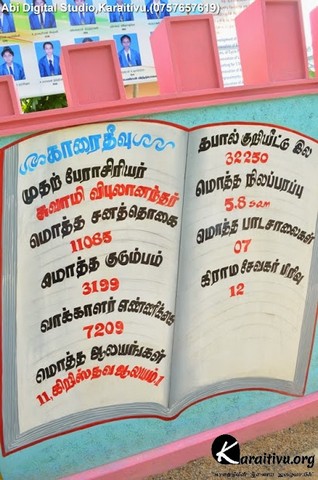 Abi Digital Studio,Karaitivu.(0757657619)
காரைதீவு
முதற் பேராசிரியர்
சுவாமி விபுலானந்தர்
மொத்த சனத்தொகை
11065
மொத்த குடும்பம்
3199
வாக்காளர் எண்ணிக்கை
7209
மொத்த ஆலயங்கள்
11,கிறிஸ்தவ ஆலயம்.1
தபால் குறியீட்டு இல
32250
மொத்த நிலப்பரப்பு
5.8 ச.கம
மொத்த பாடசாலைகள்
07
கிராம சேவகர் பிரிவு
12
Karaitivu.org